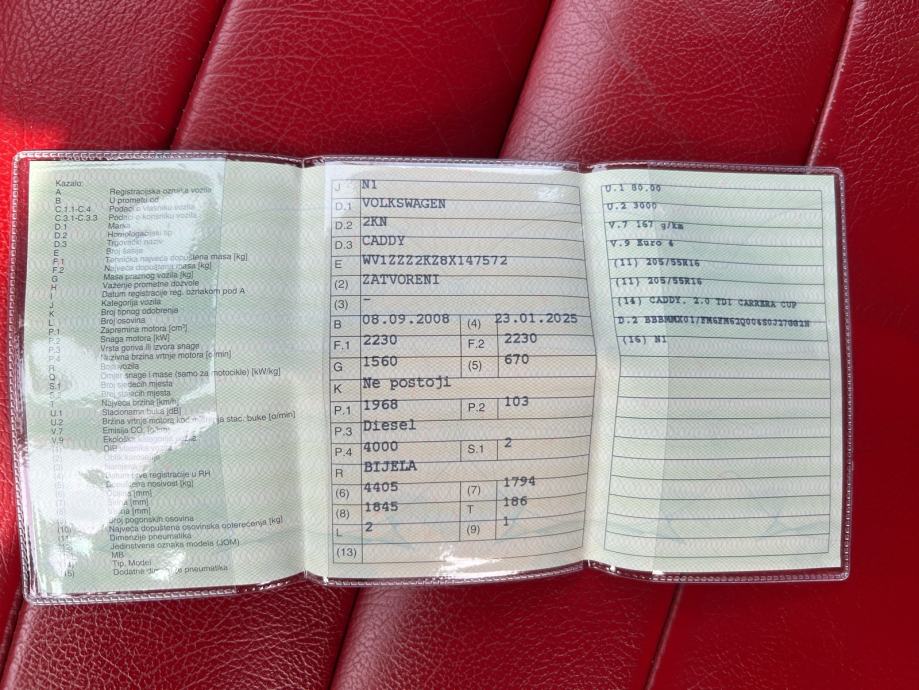 Kazalo:
A Registracijska oznaka vozila
B U prometu od
C.1.1-C.4 Podaci o vlasniku vozila
C.3.1-C.3.3 Podaci o korisniku vozila
D.1 Marka
D.2 Homologacijski tip
D.3 Trgovački naziv
E Broj šasije
F.1 Tehnička najveća dopuštena masa [kg]
F.2 Najveća dopuštena masa [kg]
G Masa praznog vozila [kg]
H Važenje prometne dozvole
I Datum registracije reg. oznakom pod A
J Kategorija vozila
K Broj tipnog odobrenja
L Broj osovina
P.1 Zapremina motora [cm³]
P.2 Snaga motora [kW]
P.3 Vrsta goriva ili izvora snage
P.4 Nazivna brzina vrtnje motora [o/min]
R Boja vozila
Q Omjer snage i mase (samo za motocikle) [kW/kg]
S.1 Broj sjedećih mjesta
Broj stajećih mjesta
T Najveća brzina [km/h]
U.1 Stacionarna buka [dB]
U.2 Brzina vrtnje motora kod stac. buke [o/min]
V.7 Emisija CO₂
V.9 Ekološka kategorija
Datum prve registracije u RH
nosivost [kg]
[mm]
[mm]
[mm]
Broj pogonskih osovina
(10) Najveća dopuštena osovinska opterećenja [kg]
Dimenzije pneumatika
Jedinstvena oznaka modela (JOM)
MB
Tip, Model
(15) Dodatne pneumatika
J N1
D.1 VOLKSWAGEN
D.2 2KN
D.3 CADDY
E WV1ZZZ2KZ8X147572
(2) ZATVORENI
(3) –
B 08.09.2008 (4) 23.01.2025
F.1 2230 F.2 2230
G 1560 (5) 670
K Ne postoji
P.1 1968 P.2 103
P.3 Diesel
P.4 4000 S.1 2
R BIJELA
(6) 4405 (7) 1794
(8) 1845 T 186
L 2 (9) 1
(13)
U.1 80.00
U.2 3000
V.7 167 g/km
V.9 Euro 4
(11) 205/55R16
(11) 205/55R16
(14) CADDY, 2.0 TDI CARRERA CUP
D.2
(16) N1